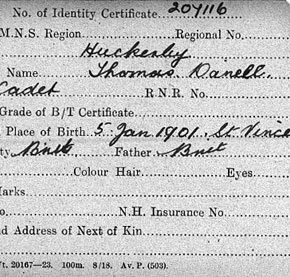 No. of Identity Certificate. 204116
M.N.S. Region Regional No.
Huckerby
Name Thomas Danell.
Cadet R.N.R. No.
Grade of B/T Certificate.
Place of Birth 5 Jan 1901. St. Vince
ty Brit Father Brit
Colour Hair Eyes
Marks
o. N.H. Insurance No.
d Address of Next of Kin
t. 20167—23. 100m. 8/18. Av. P. (503).